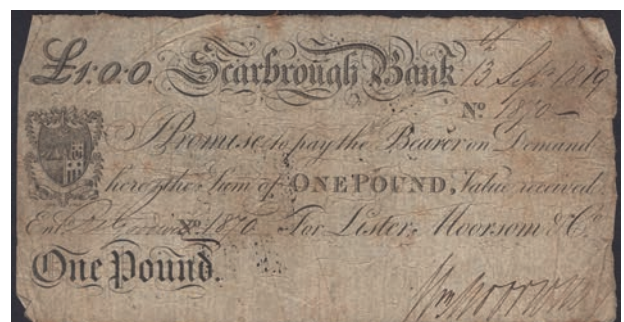 £1:0:0. Scarbrough Bank 13th Sept. 1819
No. 1870
I Promise to pay the Bearer on Demand
here, the Sum of ONE POUND, Value received
Entd. No. 1870 For Lister, Moorsom & Co.
One Pound.